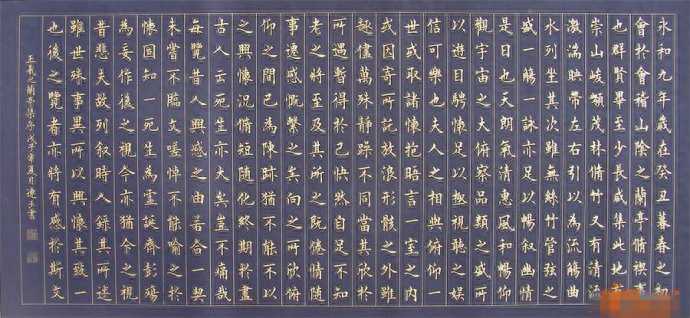 永和九年歲在癸丑暮春之初
會於會稽山陰之蘭亭脩禊事
也群賢畢至少長咸集此地有
崇山峻領茂林脩竹又有清流
激湍映帶左右引以為流觴曲
水列坐其次雖無絲竹管弦之
盛一觴一詠亦足以暢叙幽情
是日也天朗氣清惠風和暢仰
觀宇宙之大俯察品類之盛所
以遊目騁懷足以極視聽之娛
信可樂也夫人之相與俯仰一
世或取諸懷抱晤言一室之內
或因寄所託放浪形骸之外雖
趣萬殊靜躁不同當其欣於
所遇暫得於己快然自足不知
老之將至及其所之既倦情隨
事遷感慨繫之矣向之所欣俯
仰之間已為陳跡猶不能不以
之興懷況脩短隨化終期於盡
古人云死生亦大矣豈不痛哉
每覽昔人興感之由若合一契
未嘗不臨文嗟悼不能喻之於
懷固知一死生為虛誕齊彭殤
為妄作後之視今亦猶今之視
昔悲夫故列叙時人錄其所述
雖世殊事異所以興懷其致一
也後之覽者亦將有感於斯文
王羲之蘭亭集序戊子年夏月書